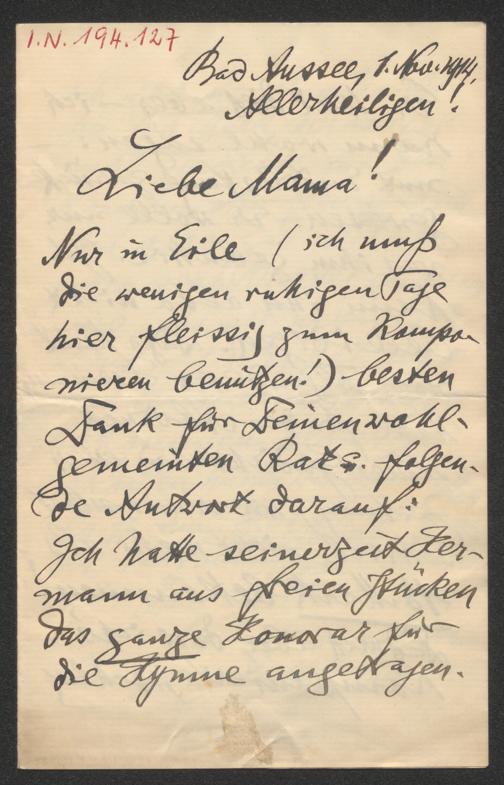 I.N. 194.127
Bad Aussee, 1. Nov. 1914,
Allerheiligen!
Liebe Mama!
Nur in Eile (ich muß
die wenigen ruhigen Tage
hier fleissig zum Kompo-
nieren benützen!) besten
Dank für Deinen wohl-
gemeinten Rat u. folgen-
de Antwort darauf:
Ich hatte seinerzeit Her-
mann aus freien Stücken
das ganze Honorar für
die Hymne angetragen.